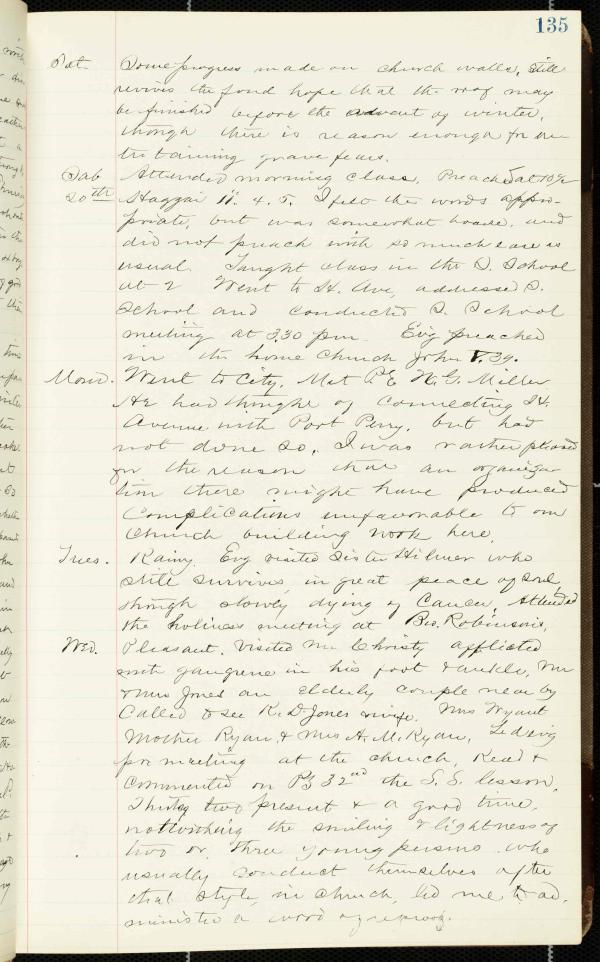 135
Sat. Some progress made on church walls, still
revives the fond hope that the roof may
be finished before the advent of winter,
though there is reason enough for en-
tertaining grave fears.
Sab Attended morning class. Preached at 10 1/2
20th Haggai II. 4. 5. I felt the words appro-
priate, but was somewhat hoarse, and
did not preach with so much ease as
usual. Taught class in the S. School
at 2 Went to H. Ave, addressed S.
School and conducted S. School
meeting at 3.30 pm. Evg preached
in the home church John 5.39.
Mond. Went to City. Met P.E. N.G. Miller
He had thought of connecting H.
Avenue with Port Perry, but had
not done so. I was rather pleased
for the reason that an organiza
tion there might have produced
Complications unfavorable to our
Church building work here.
Tues. Rainy. Evg visited Sister Hilmer who
still survives in great peace of soul,
though slowly dying of Cancer. Attended
the holiness meeting at Bro. Robinson's,
Wed. Pleasant. Visited Mr Christy afflicted
with gangrene in his foot & ankle, Mr
& Mrs Jones an elderly couple near by
Called to see R. D. Jones & wife. Mrs Wyant
Mother Ryan & Mrs A. M. Ryan. Led evg
pr meeting at the church, Read &
commented on Ps 32nd the S.S. lesson,
Thirty two present & a good time,
notwithing the smiling & lightness of
two or three young persons who
usually conduct themselves after
that style, in church, led me to ad-
minister a word of reproof.